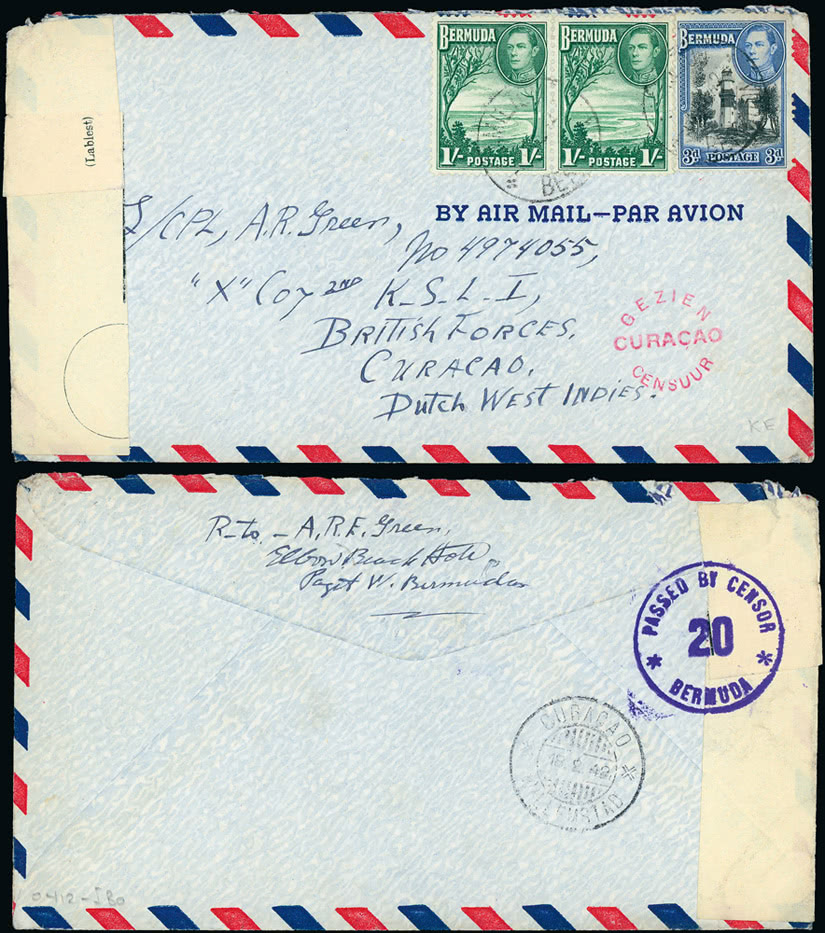 BERMUDA
1/- POSTAGE 1/-
BERMUDA
1/- POSTAGE 1/-
BERMUDA
3d POSTAGE 3d
(Lablest)
BY AIR MAIL—PAR AVION
L/CPL, A.R. Green,
No 4974055,
"X" Coy 2ND K-S-L-I,
BRITISH FORCES,
CURACAO,
DUTCH WEST INDIES.
GEZIEN
CURAÇAO
CENSUUR
KE
R-to - A.R.F. Green,
Elbow Beach
Paget W. Bermuda
PASSED BY CENSOR
20
* BERMUDA *
CURAÇAO
WILLEMSTAD